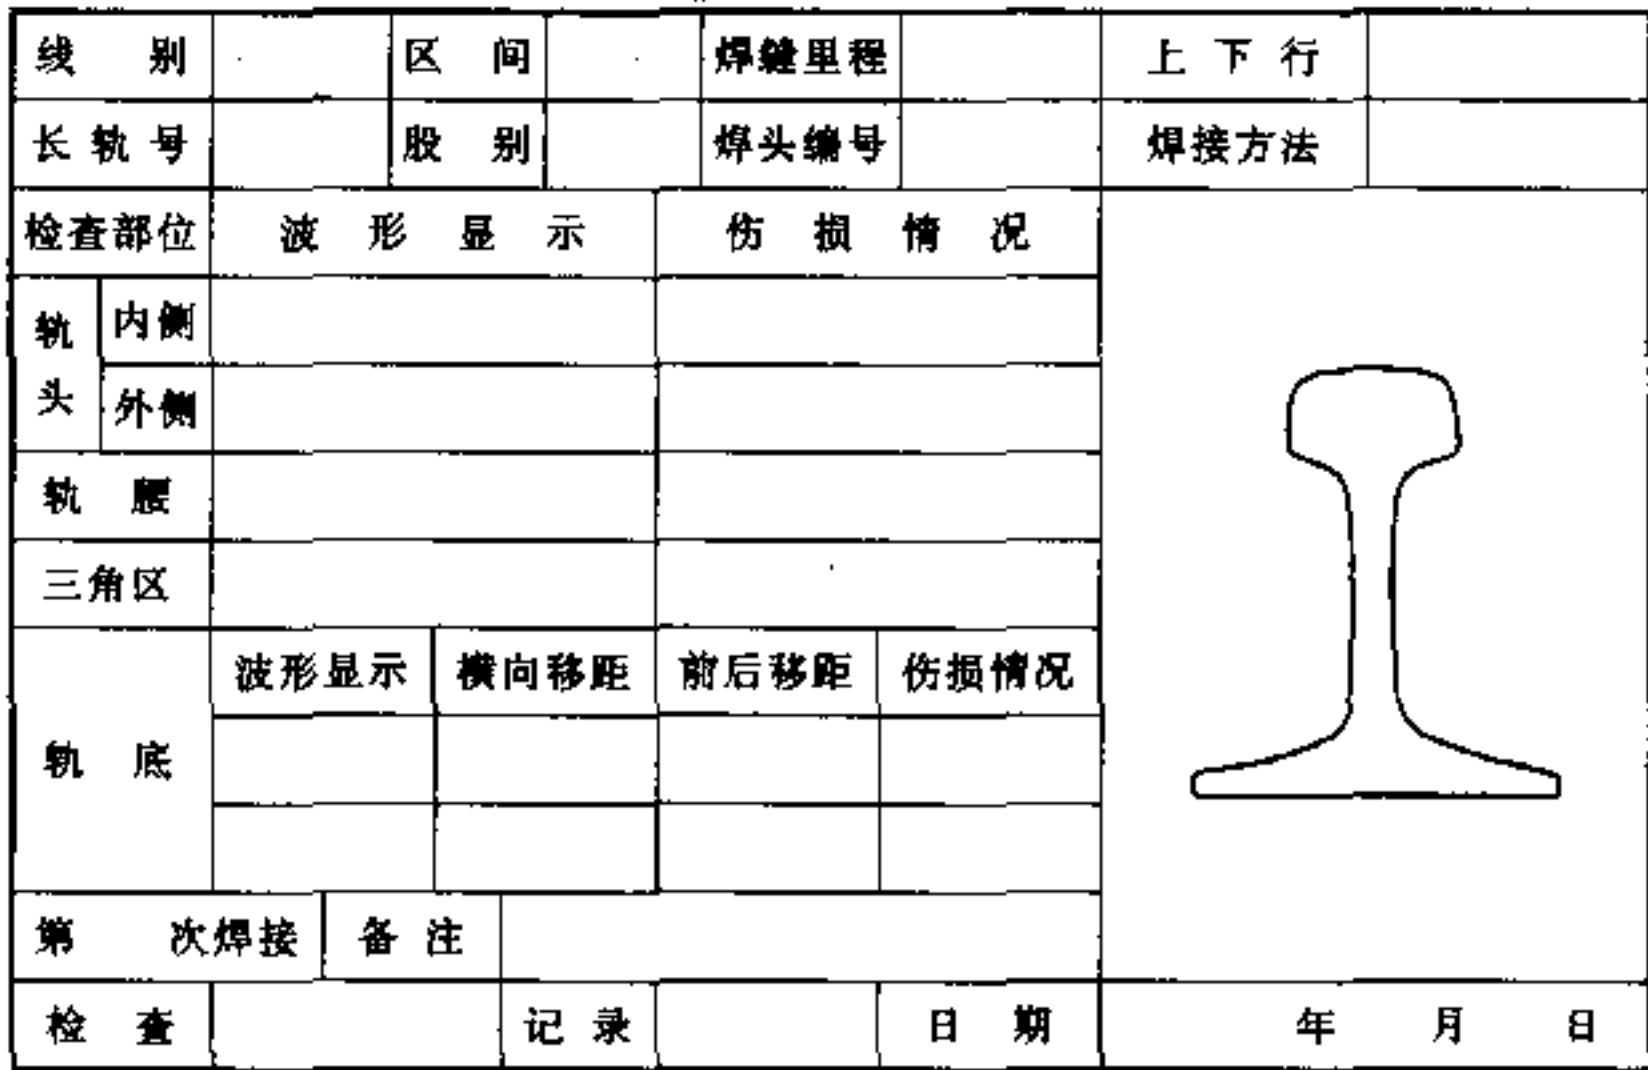 线 别 区 间 焊缝里程 上 下 行
长 轨 号 股 别 焊头编号 焊接方法
检查部位 波 形 显 示 伤 损 情 况
轨头 内侧
外侧
轨 腰
三角区
轨 底 波形显示 横向移距 前后移距 伤损情况
第 次焊接 备 注
检 查 记 录 日 期 年 月 日